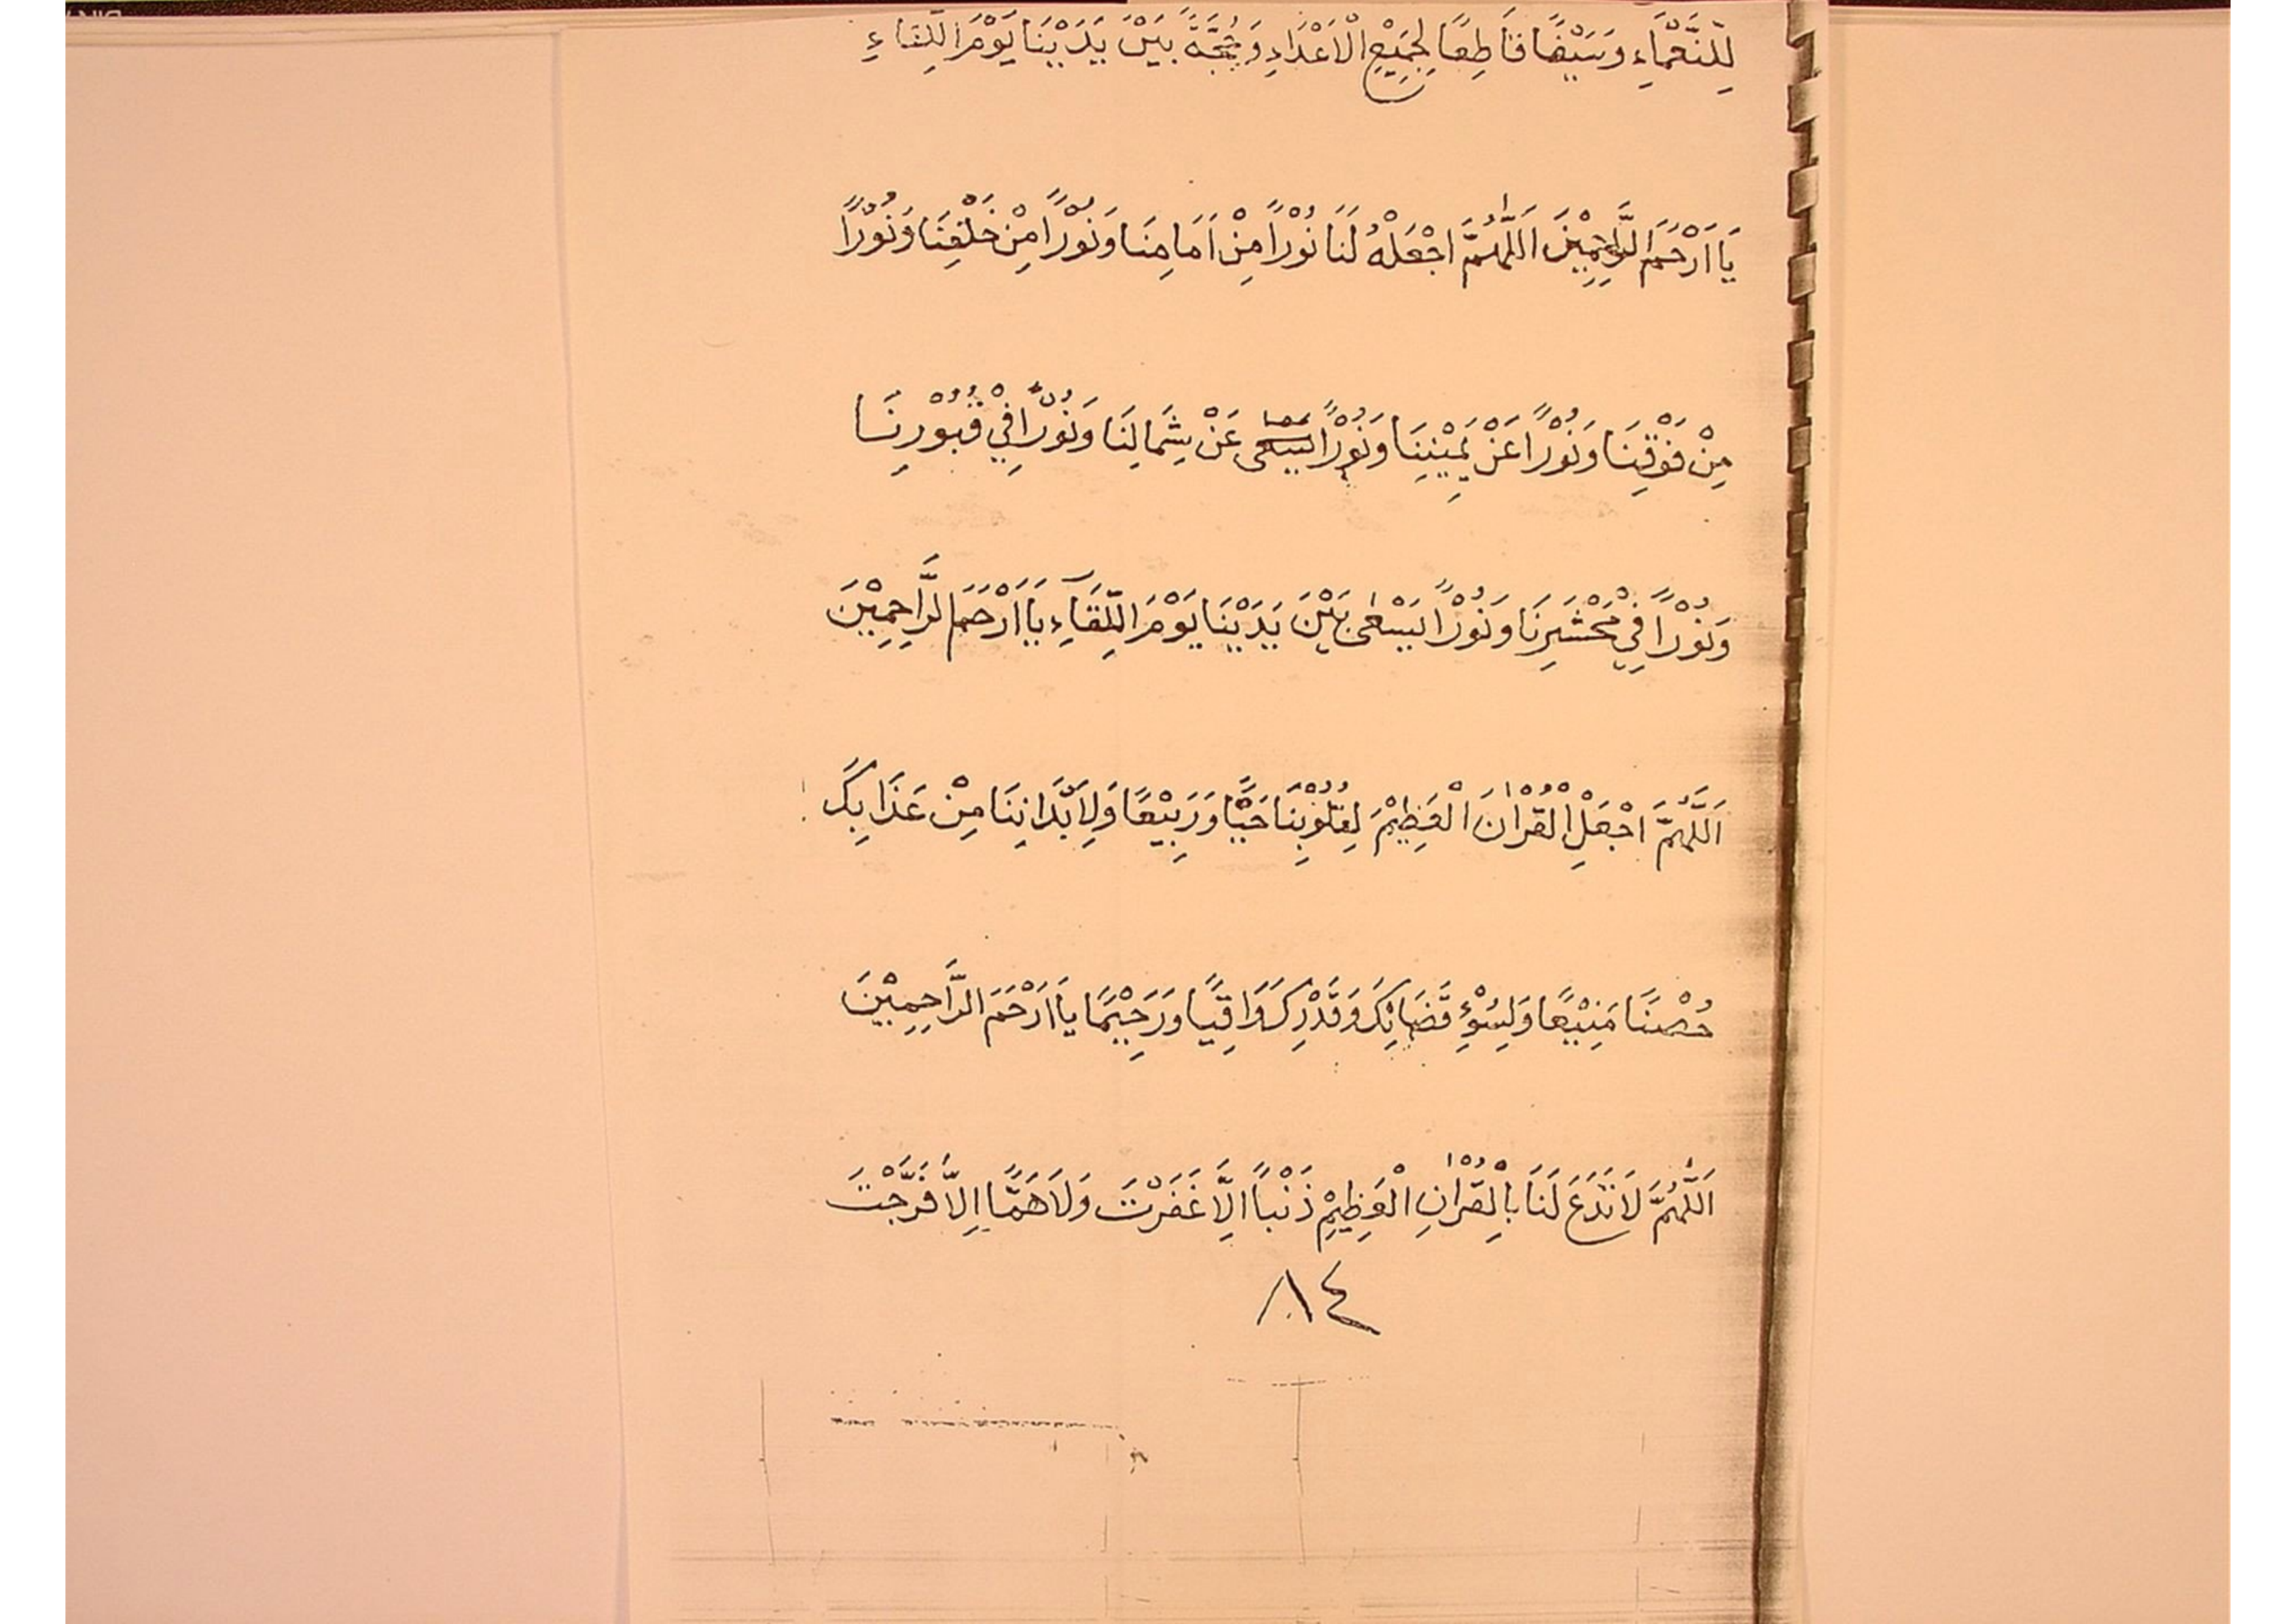 لِلنَّعْمَاءِ وَسَيْفًا قَاطِعًا لِجَمِيْعِ الْاَعْدَاءِ وَحُجَّةً بَيْنَ يَدَيْنَا يَوْمَ اللِّقَاءِ
يَا اَرْحَمَ الرَّاحِمِيْنَ اَللّٰهُمَّ اجْعَلْهُ لَنَا نُوْرًا مِنْ اَمَامِنَا وَنُوْرًا مِنْ خَلْفِنَا وَنُوْرًا
مِنْ فَوْقِنَا وَنُوْرًا عَنْ يَمِيْنِنَا وَنُوْرًا عَنْ شِمَالِنَا وَنُوْرًا فِيْ قُبُوْرِنَا
وَنُوْرًا فِيْ مَحْشَرِنَا وَنُوْرًا يَسْعٰى بَيْنَ يَدَيْنَا يَوْمَ اللِّقَآءِ يَا اَرْحَمَ الرَّاحِمِيْنَ
اَللّٰهُمَّ اجْعَلِ الْقُرْاٰنَ الْعَظِيْمَ لِقُلُوْبِنَا حَبًّا وَرَبِيْعًا وَلِاَبْدَانِنَا مِنْ عَذَابِكَ
حُصْنًا مَنِيْعًا وَلِسُوْءِ قَضَائِكَ وَقَدْرِكَ وَاقِيًا وَرَحِيْمًا يَا اَرْحَمَ الرَّاحِمِيْنَ
اَللّٰهُمَّ لَا تَدَعْ لَنَا بِالْقُرْاٰنِ الْعَظِيْمِ ذَنْبًا اِلَّا غَفَرْتَ وَلَا هَمًّا اِلَّا فَرَّجْتَ
٨٤